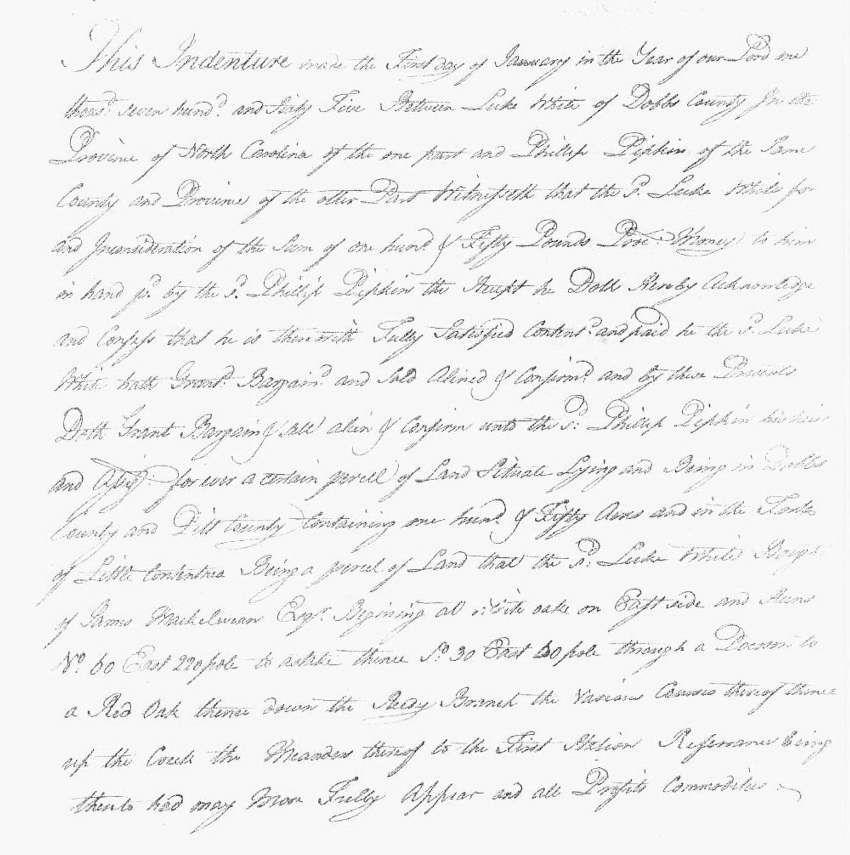 This Indenture made the First day of January in the Year of our Lord one
thousd. seven hundd. and Sixty Five Between Luke White of Dobbs County In the
Province of North Carolina of the one part and Phillip Pipkin of the Same
County and Province of the other Part Witnesseth that the Sd. Luke White for
and Inconsideration of the Sum of one hund. & Fifty Pounds Money to him
in hand pd. by the Sd. Phillip Pipkin the Receipt he Doth Hereby Acknowledge
and Confess that he is therewith Fully Satisfied Contentd. and paid he the Sd. Luke
White hath Grantd. Bargaind. and Sold Alined & Confirmd. and by these Presents
Doth Grant Bargain & Sell alien & Confirm unto the Sd. Phillip Pipkin his heirs
and Assigs. for ever a certain percell of Land Situate Lying and Being in Dobbs
County and County Containing one hund. & Fifty Acres and in the
of Little Contentnea Being a percel of Land that the Sd. Luke White
of James Mackelwean Esqr. Begining at White oake on East side and Runs
No. 60 East 220 pole to a stake thence So. 30 East pole through a to
a Red Oak thence down the Reedy Branch the Various Courses thereof thence
up the Creek the Meanders thereof to the First Station Refferrance being
thereto had may More Fully Appear and all Profits Commodities